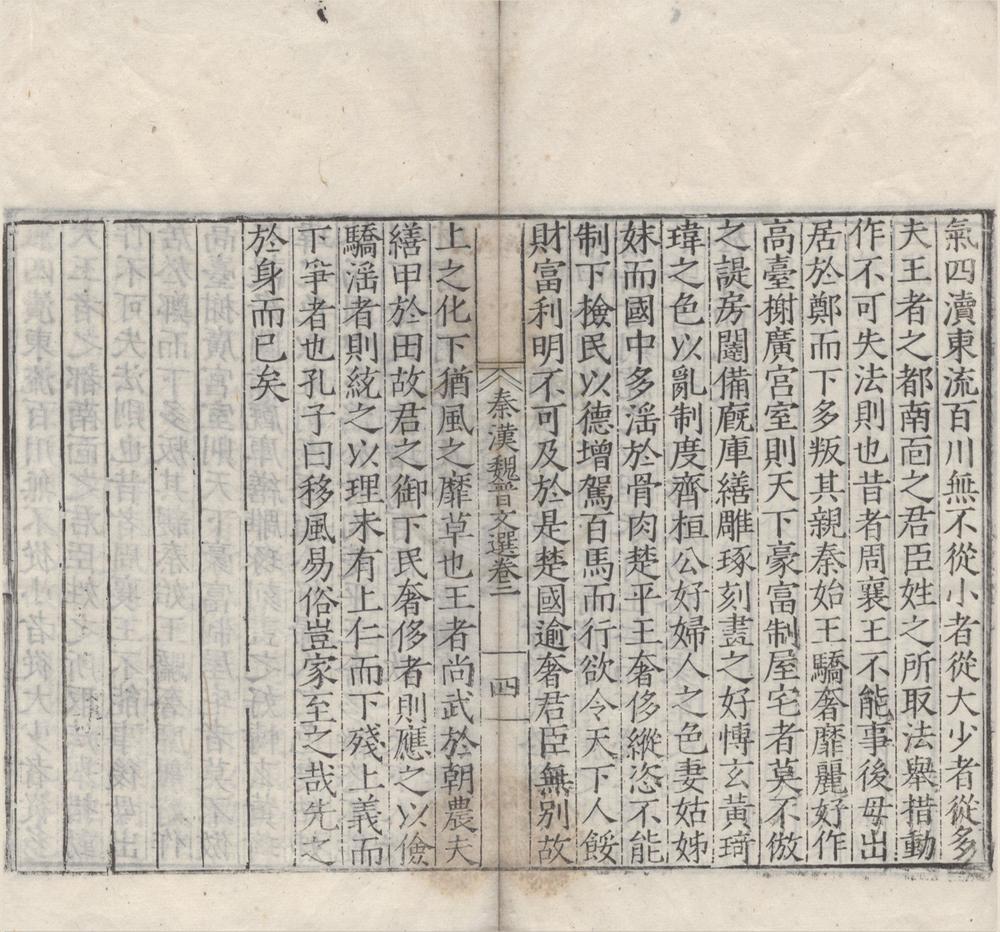 氣四瀆東流百川無不從小者從大少者從多
夫王者之都南面之君臣姓之所取法舉措動
作不可失法則也昔者周襄王不能事後母出
居於鄭而下多叛其親秦始王驕奢靡麗好作
高臺榭廣宮室則天下豪富制屋宅者莫不倣
之諟房闥備廐庫繕雕琢刻畫之好慱玄黃琦
瑋之色以亂制度齊桓公好婦人之色妻姑姊
妹而國中多淫於骨肉楚平王奢侈縱恣不能
制下檢民以德增駕百馬而行欲令天下人餒
財富利明不可及於是楚國逾奢君臣無别故
秦漢魏晉文選卷二
四
上之化下猶風之靡草也王者尚武於朝農夫
繕甲於田故君之御下民奢侈者則應之以儉
驕淫者則統之以理未有上仁而下殘上義而
下爭者也孔子曰移風易俗豈家至之哉先之
於身而已矣